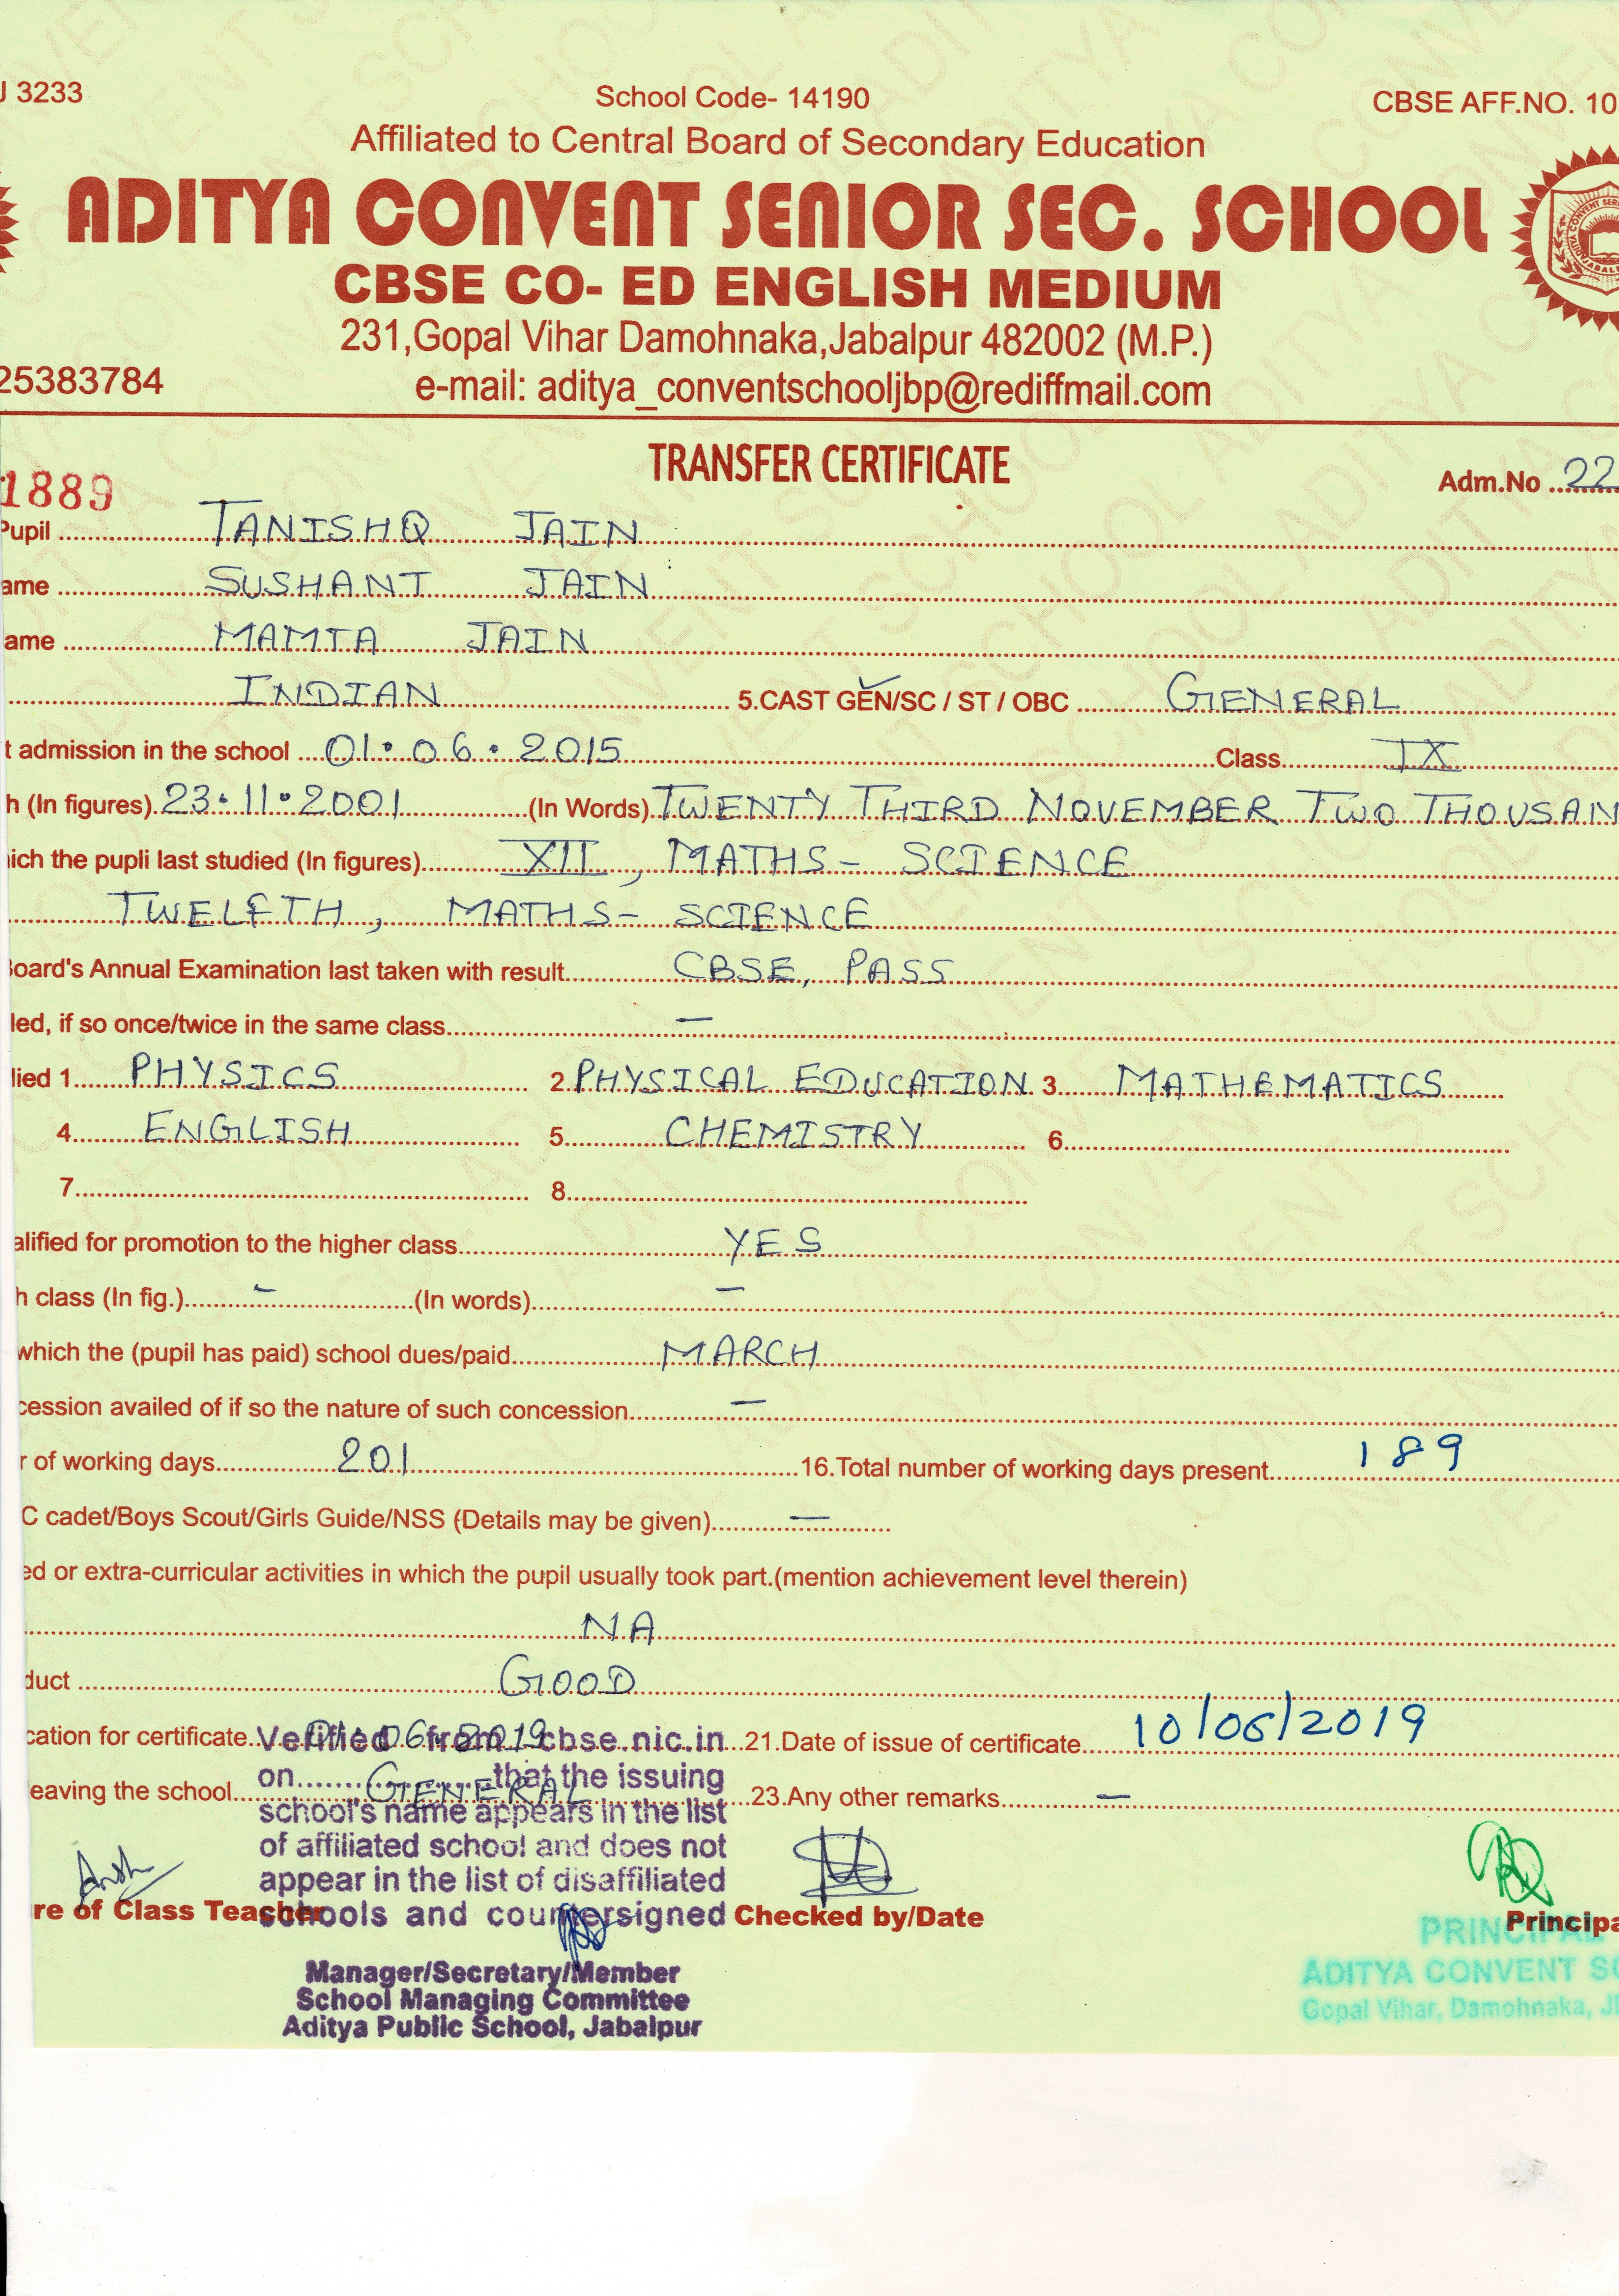 J 3233 School Code- 14190 CBSE AFF.NO. 10
Affiliated to Central Board of Secondary Education
ADITYA CONVENT SENIOR SEC. SCHOOL
CBSE CO- ED ENGLISH MEDIUM
231,Gopal Vihar Damohnaka,Jabalpur 482002 (M.P.)
25383784 e-mail: aditya_conventschooljbp@rediffmail.com
TRANSFER CERTIFICATE
1889 Adm.No 22
Pupil TANISHQ JAIN
ame SUSHANT JAIN
ame MAMTA JAIN
INDIAN 5.CAST GEN/SC / ST / OBC GENERAL
t admission in the school 01.06.2015 Class IX
h (In figures) 23.11.2001 (In Words) TWENTY THIRD NOVEMBER TWO THOUSAN
ich the pupli last studied (In figures) XII, MATHS- SCIENCE
TWELFTH, MATHS- SCIENCE
Board's Annual Examination last taken with result CBSE, PASS
led, if so once/twice in the same class —
lied 1 PHYSICS 2 PHYSICAL EDUCATION 3 MATHEMATICS
4 ENGLISH 5 CHEMISTRY 6
7 8
alified for promotion to the higher class YES
h class (In fig.) — (In words) —
which the (pupil has paid) school dues/paid MARCH
cession availed of if so the nature of such concession —
r of working days 201 16.Total number of working days present 189
C cadet/Boys Scout/Girls Guide/NSS (Details may be given) —
ed or extra-curricular activities in which the pupil usually took part.(mention achievement level therein)
NA
duct GOOD
cation for certificate 01.06.2019 21.Date of issue of certificate 10/06/2019
eaving the school GENERAL 23.Any other remarks —
Verified from cbse.nic.in
on that the issuing
school's name appears in the list
of affiliated school and does not
appear in the list of disaffiliated
schools and countersigned
re of Class Teacher Checked by/Date Principa
Manager/Secretary/Member
School Managing Committee
Aditya Public School, Jabalpur
PRINCIPAL
ADITYA CONVENT SC
Gopal Vihar, Damohnaka, J